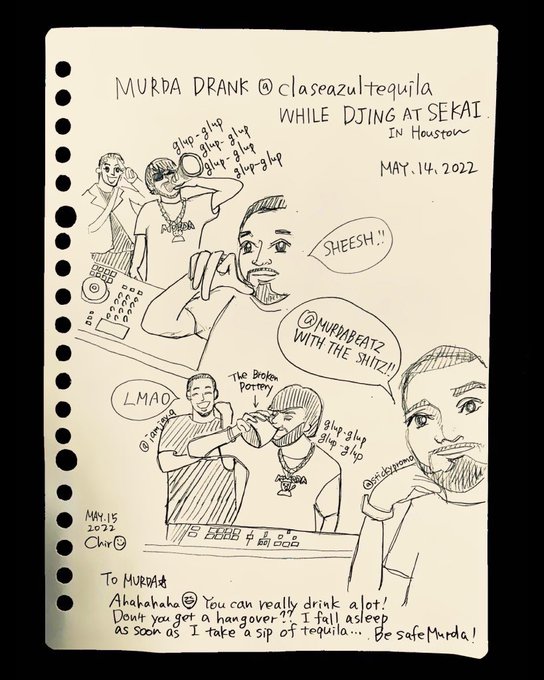 MURDA DRANK @claseazultequila
WHILE DJING AT SEKAI
IN Houston
MAY.14.2022
glup-glup
glup-glup
glup-glup
glup-glup
MURDA
SHEESH!!
@MURDABEATZ
WITH THE SHITZ!!
LMAO
The Broken
Pottery
glup-glup
glup-glup
MURDA
@stickypromo
MAY.15
2022
Chir
To MURDA
Ahahahaha You can really drink alot!
Don't you get a hangover?? I fall asleep
as soon as I take a sip of tequila... Be safe Murda!